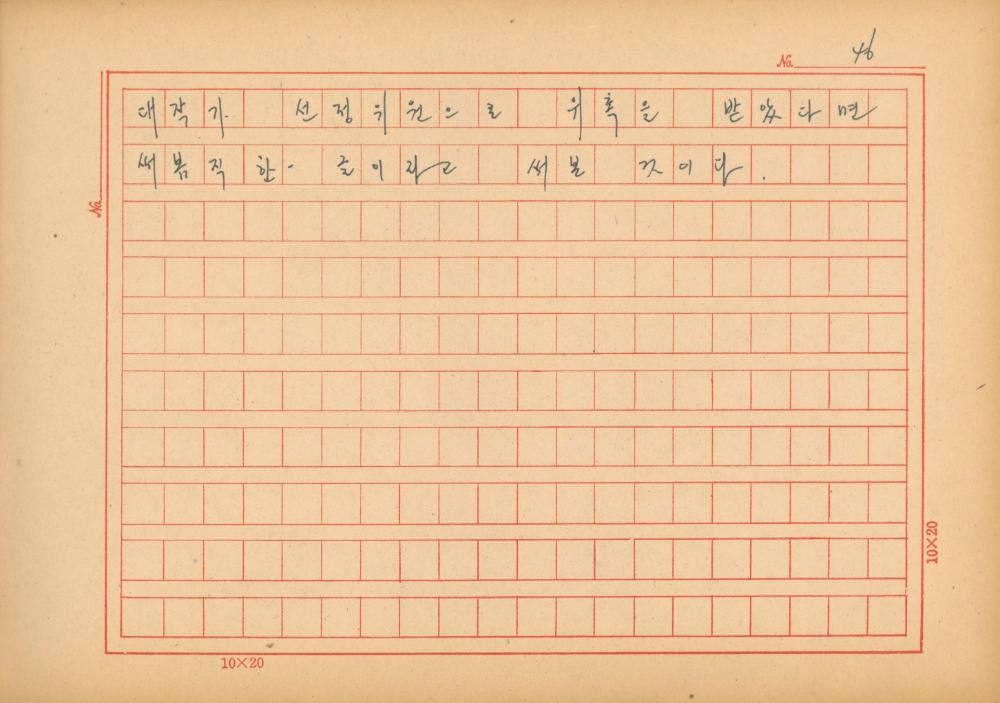 No. 46
대작가 선정위원으로 위혹을 받았다면
써봄직한 글이라고 써본 것이다.
No.
10×20
10×20